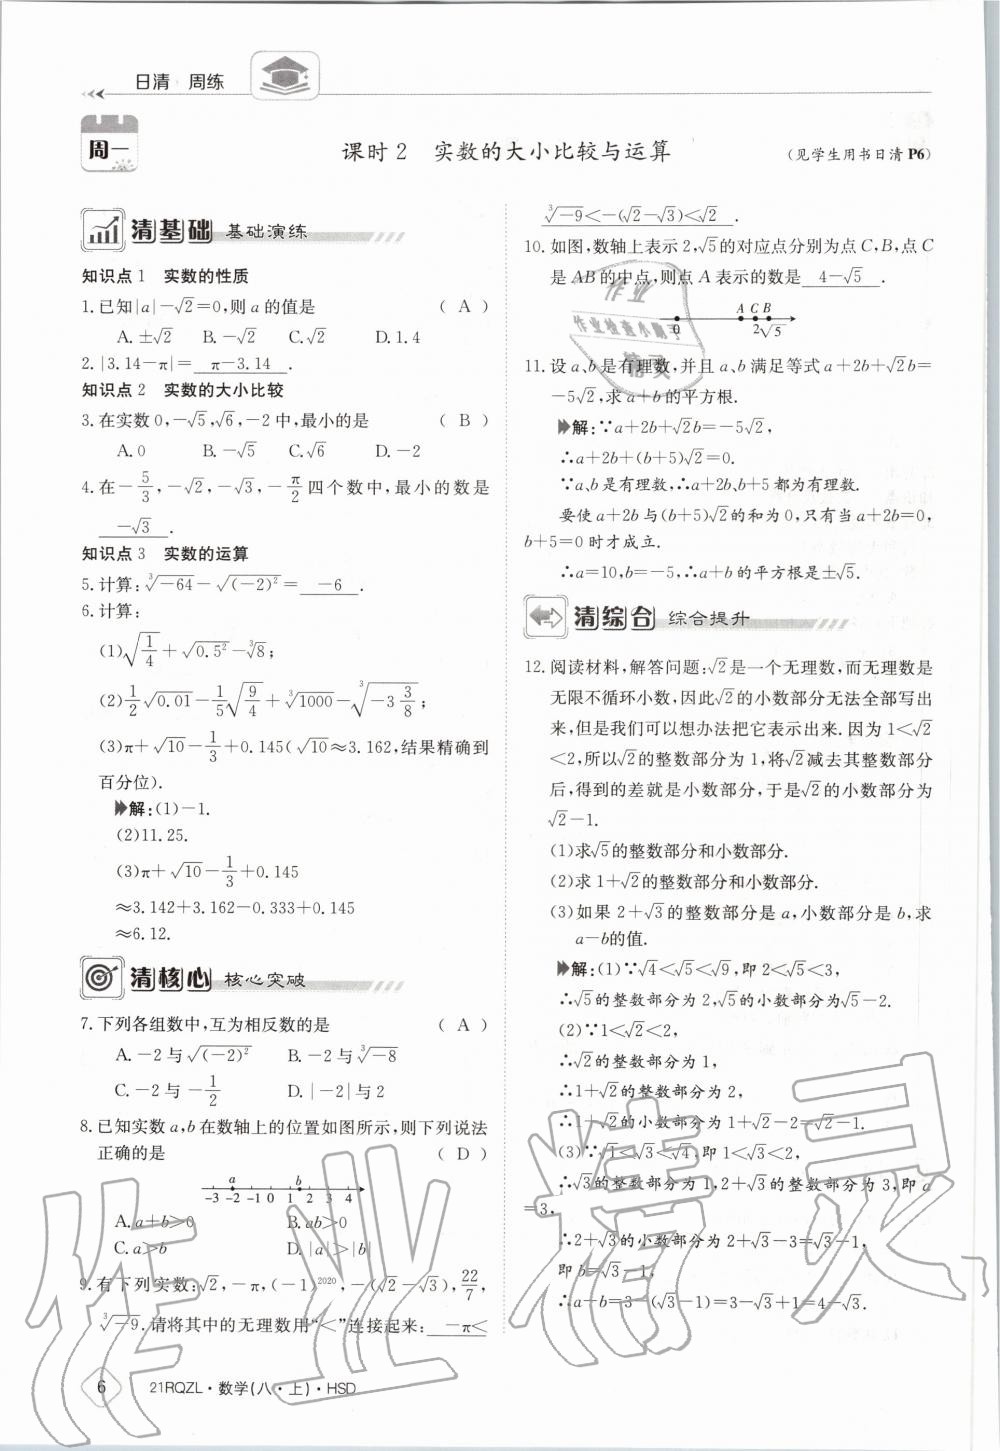 日清 周练
周一
课时2 实数的大小比较与运算
(见学生用书日清P6)
清基础 基础演练
知识点1 实数的性质
1.已知|a|-√2=0,则a的值是 ( A )
A.±√2 B.-√2 C.√2 D.1.4
2.|3.14-π|= π-3.14 .
知识点2 实数的大小比较
3.在实数0,-√5,√6,-2中,最小的是 ( B )
A.0 B.-√5 C.√6 D.-2
4.在-5/3,-√2,-√3,-π/2四个数中,最小的数是
-√3 .
知识点3 实数的运算
5.计算:∛-64-√(-2)²= -6 .
6.计算:
(1)√1/4+√0.5²-∛8;
(2)1/2√0.01-1/5√9/4+∛1000-∛-3 3/8;
(3)π+√10-1/3+0.145(√10≈3.162,结果精确到
百分位).
解:(1)-1.
(2)11.25.
(3)π+√10-1/3+0.145
≈3.142+3.162-0.333+0.145
≈6.12.
清核心 核心突破
7.下列各组数中,互为相反数的是 ( A )
A.-2与√(-2)² B.-2与∛-8
C.-2与-1/2 D.|-2|与2
8.已知实数a,b在数轴上的位置如图所示,则下列说法
正确的是 ( D )
a b
-3 -2 -1 0 1 2 3 4
A.a+b>0 B.ab>0
C.a>b D.|a|>|b|
9.有下列实数:√2,-π,(-1)²⁰²⁰,-(√2-√3),22/7,
∛-9.请将其中的无理数用“<”连接起来: -π<
6 21RQZL·数学(八·上)·HSD
∛-9<-(√2-√3)<√2 .
10.如图,数轴上表示2,√5的对应点分别为点C,B,点C
是AB的中点,则点A表示的数是 4-√5 .
A C B
0 2 √5
11.设a、b是有理数,并且a、b满足等式a+2b+√2b=
-5√2,求a+b的平方根.
解:∵a+2b+√2b=-5√2,
∴a+2b+(b+5)√2=0.
∵a、b是有理数,∴a+2b、b+5都为有理数.
要使a+2b与(b+5)√2的和为0,只有当a+2b=0,
b+5=0时才成立.
∴a=10,b=-5,∴a+b的平方根是±√5.
清综合 综合提升
12.阅读材料,解答问题:√2是一个无理数,而无理数是
无限不循环小数,因此√2的小数部分无法全部写出
来,但是我们可以想办法把它表示出来.因为1<√2
<2,所以√2的整数部分为1,将√2减去其整数部分
后,得到的差就是小数部分,于是√2的小数部分为
√2-1.
(1)求√5的整数部分和小数部分.
(2)求1+√2的整数部分和小数部分.
(3)如果2+√3的整数部分是a,小数部分是b,求
a-b的值.
解:(1)∵√4<√5<√9,即2<√5<3,
∴√5的整数部分为2,√5的小数部分为√5-2.
(2)∵1<√2<2,
∴√2的整数部分为1,
∴1+√2的整数部分为2,
∴1+√2的小数部分为1+√2-2=√2-1.
(3)∵√1<√3<√4,即1<√3<2,
∴√3的整数部分为1,2+√3的整数部分为3,即a
=3,
∴2+√3的小数部分为2+√3-3=√3-1,
即b=√3-1,
∴a-b=3-(√3-1)=3-√3+1=4-√3.
作业
作业检查小助手
精灵
作业精灵